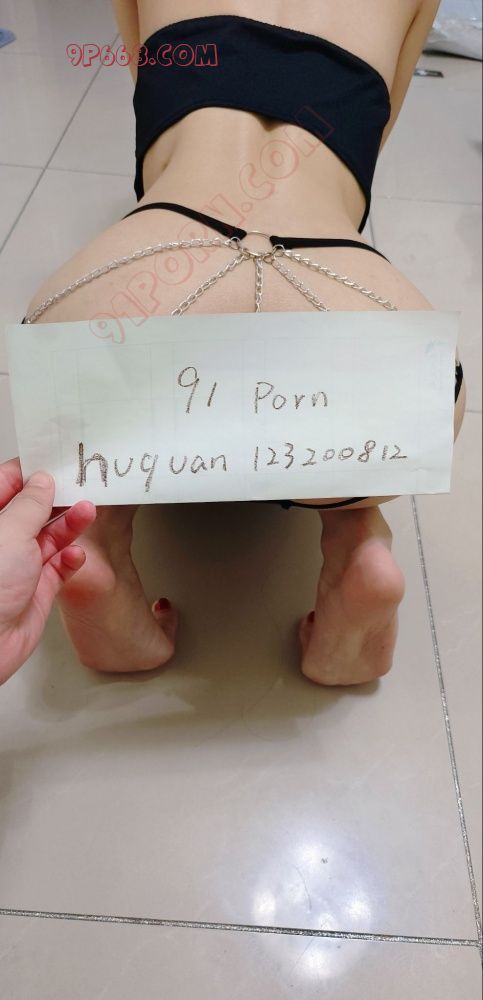 9P668.COM
91PORN.COM
91 Porn
huquan 123200812